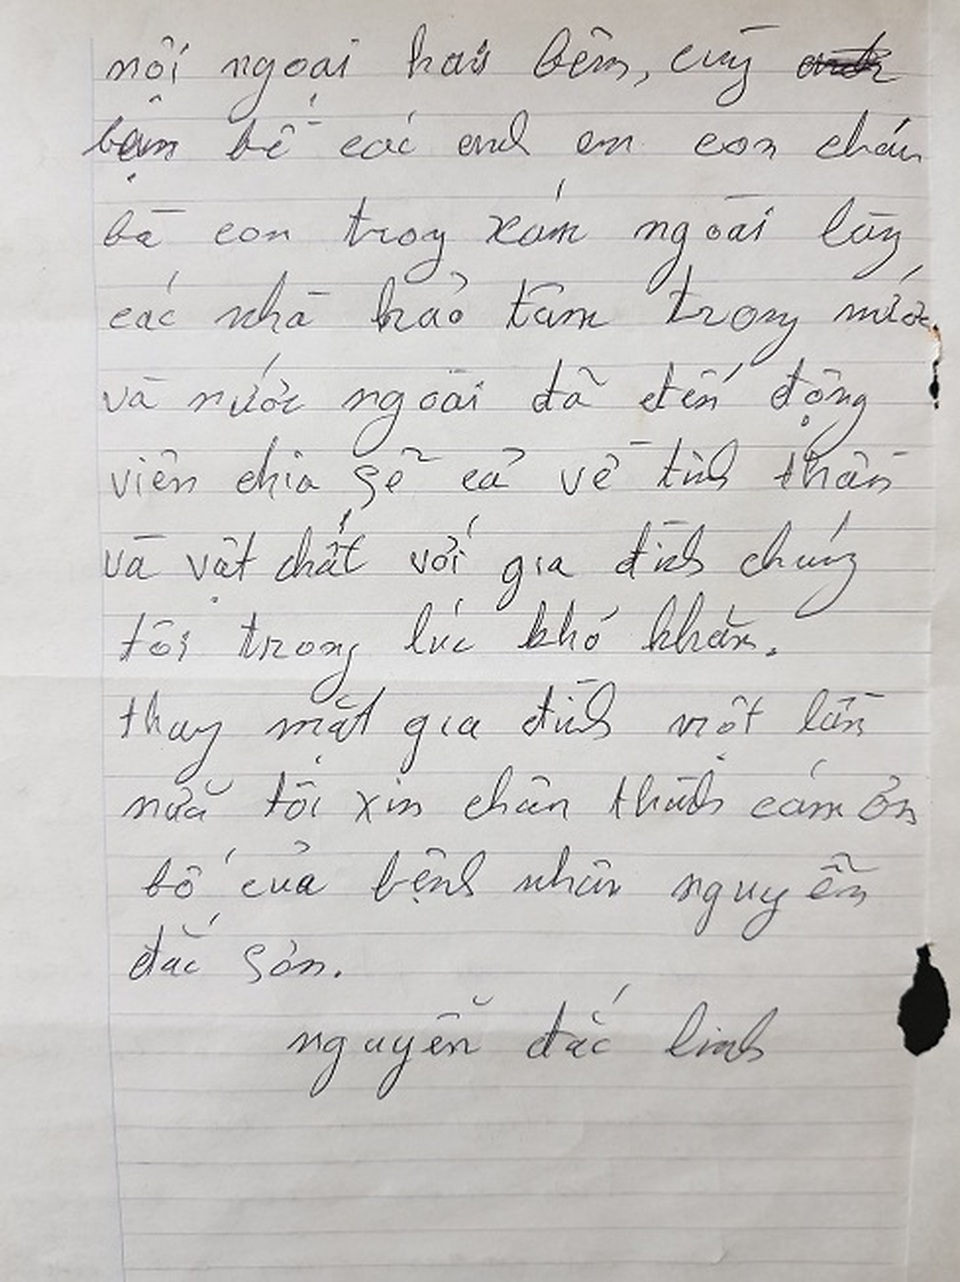 nội ngoại hai bên, cùng
bạn bề các anh em con cháu
bà con trong xóm ngoài làng
các nhà hảo tâm trong nước
và nước ngoài đã đến động
viên chia sẽ cả về tinh thần
và vật chất với gia đình chúng
tôi trong lúc khó khăn.
thay mặt gia đình một lần
nữa tôi xin chân thành cám ơn
bố của bệnh nhân nguyễn
đắc sơn.
nguyễn đắc linh